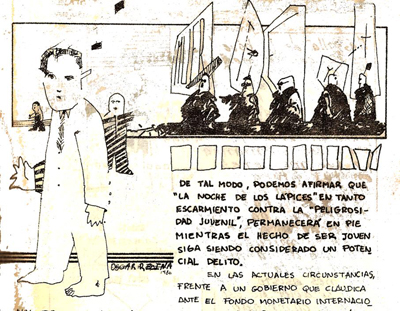 DE TAL MODO, PODEMOS AFIRMAR QUE
"LA NOCHE DE LOS LÁPICES" EN TANTO
ESCARMIENTO CONTRA LA "PELIGROSI-
DAD JUVENIL", PERMANECERÁ EN PIE
MIENTRAS EL HECHO DE SER JOVEN
SIGA SIENDO CONSIDERADO UN POTEN-
CIAL DELITO.
EN LAS ACTUALES CIRCUNSTANCIAS,
FRENTE A UN GOBIERNO QUE CLAUDICA
ANTE EL FONDO MONETARIO INTERNACIO
OSCAR